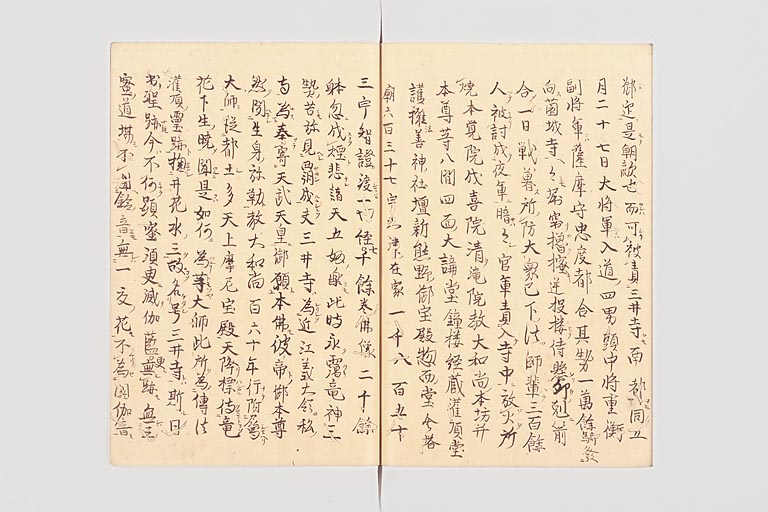 御迎是朝敵也而可被責三井寺南都同五
月二十七日大将軍入道四男頭中将重衡
副将軍薩摩守忠度都合其勢一萬余騎発
向薗城寺々堀掻楯逆接待懸卯剋箭
合一日戦暮所防大衆已下法師輩三百余
人被討成夜軍暗々官軍責入寺中放火所
焼本覚院成喜院清滝院教大和尚本坊并
本尊等八間四面大講堂鐘楼経蔵灌頂堂
護法善神社壇新熊野御宝殿惣而堂舎塔
廟六百三十七宇大津在家一千八百五十
三宇智證渡一切経七千餘巻佛像二十餘
躰忽成煙悲諸天五妙楽此時永竜神三
熱苦弥見盛成夫三井寺為近江義大領私
寺為奉寄天武天皇御願本佛彼帝御本尊
然聞生身弥勒教大和尚百六十年行即為
大師従都士多天上摩尼宝殿天降標待竜
花下生暁聞是如何為大師此所為傳法
灌頂霊跡掬井花水三故名号三井寺斯目
出聖跡今不何顕密須臾滅伽藍更無跡三
密道場不鐘音無一夏花不為閼伽音